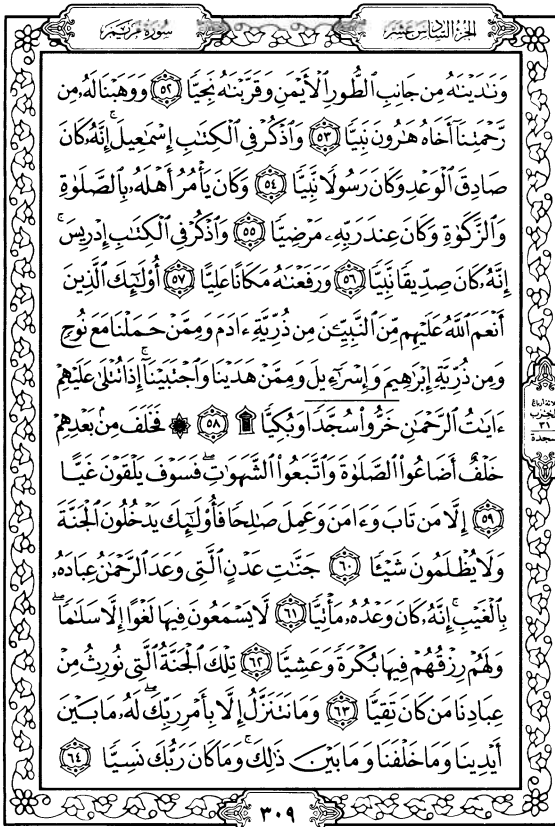 سُورَةُ مَرْيَمَ
الجُزْءُ السَّادِسَ عَشَرَ
وَنَٰدَيْنَٰهُ مِن جَانِبِ ٱلطُّورِ ٱلْأَيْمَنِ وَقَرَّبْنَٰهُ نَجِيًّا ٥٢ وَوَهَبْنَا لَهُۥ مِن
رَّحْمَتِنَآ أَخَاهُ هَٰرُونَ نَبِيًّا ٥٣ وَٱذْكُرْ فِى ٱلْكِتَٰبِ إِسْمَٰعِيلَ ۚ إِنَّهُۥ كَانَ
صَادِقَ ٱلْوَعْدِ وَكَانَ رَسُولًا نَّبِيًّا ٥٤ وَكَانَ يَأْمُرُ أَهْلَهُۥ بِٱلصَّلَوٰةِ
وَٱلزَّكَوٰةِ وَكَانَ عِندَ رَبِّهِۦ مَرْضِيًّا ٥٥ وَٱذْكُرْ فِى ٱلْكِتَٰبِ إِدْرِيسَ ۚ
إِنَّهُۥ كَانَ صِدِّيقًا نَّبِيًّا ٥٦ وَرَفَعْنَٰهُ مَكَانًا عَلِيًّا ٥٧ أُو۟لَٰٓئِكَ ٱلَّذِينَ
أَنْعَمَ ٱللَّهُ عَلَيْهِم مِّنَ ٱلنَّبِيِّۦنَ مِن ذُرِّيَّةِ ءَادَمَ وَمِمَّنْ حَمَلْنَا مَعَ نُوحٍ
وَمِن ذُرِّيَّةِ إِبْرَٰهِيمَ وَإِسْرَٰٓءِيلَ وَمِمَّنْ هَدَيْنَا وَٱجْتَبَيْنَآ ۚ إِذَا تُتْلَىٰ عَلَيْهِمْ
ءَايَٰتُ ٱلرَّحْمَٰنِ خَرُّوا۟ سُجَّدًا وَبُكِيًّا ۩ ٥٨ ۞ فَخَلَفَ مِنۢ بَعْدِهِمْ
خَلْفٌ أَضَاعُوا۟ ٱلصَّلَوٰةَ وَٱتَّبَعُوا۟ ٱلشَّهَوَٰتِ ۖ فَسَوْفَ يَلْقَوْنَ غَيًّا
٥٩ إِلَّا مَن تَابَ وَءَامَنَ وَعَمِلَ صَٰلِحًا فَأُو۟لَٰٓئِكَ يَدْخُلُونَ ٱلْجَنَّةَ
وَلَا يُظْلَمُونَ شَيْـًٔا ٦٠ جَنَّٰتِ عَدْنٍ ٱلَّتِى وَعَدَ ٱلرَّحْمَٰنُ عِبَادَهُۥ
بِٱلْغَيْبِ ۚ إِنَّهُۥ كَانَ وَعْدُهُۥ مَأْتِيًّا ٦١ لَّا يَسْمَعُونَ فِيهَا لَغْوًا إِلَّا سَلَٰمًا ۖ
وَلَهُمْ رِزْقُهُمْ فِيهَا بُكْرَةً وَعَشِيًّا ٦٢ تِلْكَ ٱلْجَنَّةُ ٱلَّتِى نُورِثُ مِنْ
عِبَادِنَا مَن كَانَ تَقِيًّا ٦٣ وَمَا نَتَنَزَّلُ إِلَّا بِأَمْرِ رَبِّكَ ۖ لَهُۥ مَا بَيْنَ
أَيْدِينَا وَمَا خَلْفَنَا وَمَا بَيْنَ ذَٰلِكَ ۚ وَمَا كَانَ رَبُّكَ نَسِيًّا ٦٤
أرباع
الحزب
٣١
سجدة
٣٠٩